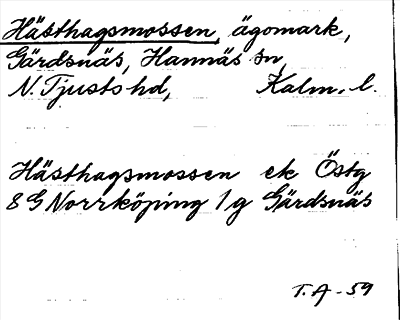 Hästhagsmossen, ägomark,
Gärdsnäs, Hannäs sn,
N. Tjusts hd, Kalm. l.
Hästhagsmossen ek Östg
8 G Norrköping 1 g Gärdsnäs
T. A - 59